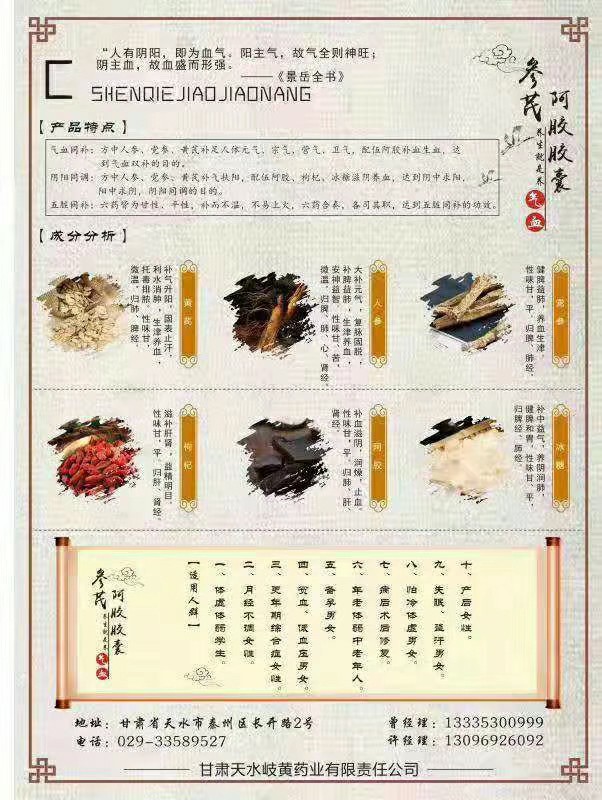 “人有阴阳，即为血气。阳主气，故气全则神旺；
阴主血，故血盛而形强。
——《景岳全书》
SHENQIEJIAOJIAONANG
参芪
阿胶胶囊
养生就是养
气血
【产品特点】
气血同补：方中人参、党参、黄芪补足人体元气、宗气、营气、卫气，配伍阿胶补血生血，达
到气血双补的目的。
阴阳同调：方中人参、党参、黄芪补气扶阳，配伍阿胶、枸杞、冰糖滋阴养血，达到阴中求阳，
阳中求阴，阴阳同调的目的。
五脏同补：六药皆为甘性、平性，补而不温，不易上火，六药合奏，各司其职，达到五脏同补的功效。
【成分分析】
黄芪
补气升阳，固表止汗，
利水消肿，生津养血，
托毒排脓，性味甘，
微温，归肺、脾经。
人参
大补元气，复脉固脱，
补脾益肺，生津养血，
安神益智，性味甘、苦，
微温，归脾、肺、心、肾经。
党参
健脾益肺，养血生津，
性味甘，平，归脾、肺经。
枸杞
滋补肝肾，益精明目，
性味甘，平，归肝、肾经。
阿胶
补血滋阴，润燥，止血，
性味甘，平，归肺、肝、
肾经。
冰糖
补中益气，养阴润肺，
健脾和胃，性味甘、平，
归脾经、肺经。
参芪
阿胶胶囊
养生就是养
气血
【适用人群】
一、体虚体弱学生。
二、月经不调女性。
三、更年期综合症女性。
四、贫血、低血压男女。
五、备孕男女。
六、年老体弱中老年人。
七、病后术后修复。
八、怕冷体虚男女。
九、失眠、盗汗男女。
十、产后女性。
地址：甘肃省天水市秦州区长开路2号
电话：029-33589527
曾经理：13335300999
许经理：13096926092
甘肃天水岐黄药业有限责任公司